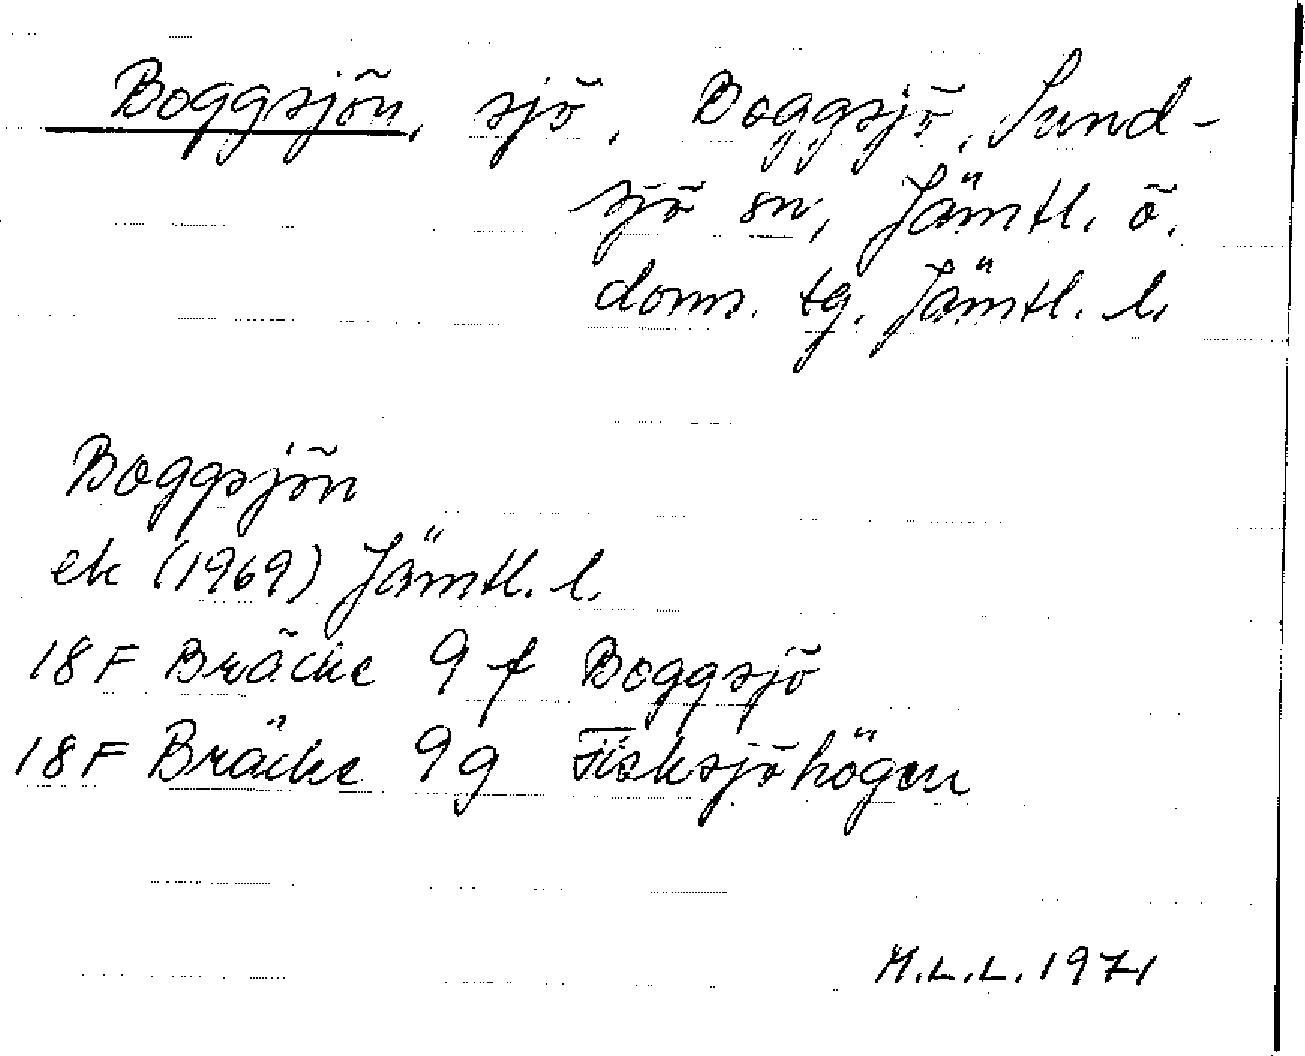 Boggsjön, sjö, Boggsjö, Sund-
sjö sn, Jämtl. ö.
doms. tg. Jämtl. l.
Boggsjön
ek (1969) Jämtl. l.
18F Bräcke 9f Boggsjö
18F Bräcke 9g Fisksjöhögen
M.L.L. 1971